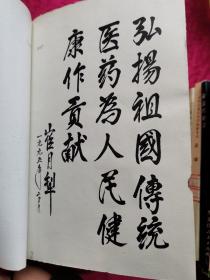 弘揚祖國傳統
医药為人民健
康作貢献
崔月犁
一九九五年